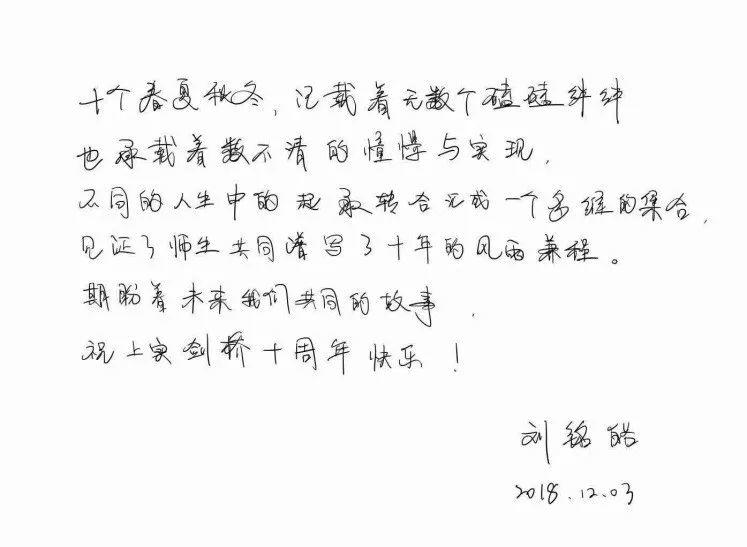 十个春夏秋冬，记载着无数个磕磕绊绊
也承载着数不清的憧憬与实现，
不同的人生中的起承转合汇成一个多维的集合，
见证了师生共同谱写了十年的风雨兼程。
期盼着未来我们共同的故事，
祝上实剑桥十周年快乐！
刘铭皓
2018.12.03